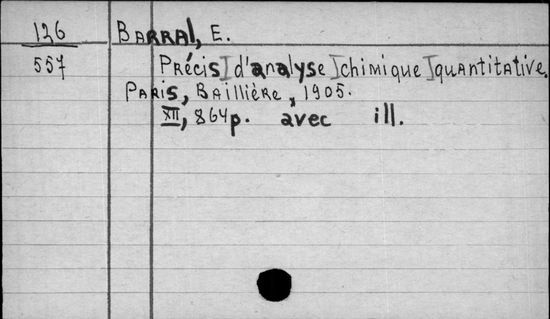 126 BARRAl, E.
557 PRécis d'analyse chimique quantitative.
PARis, BAillièRe, 1905.
XII, 864p. avec ill.